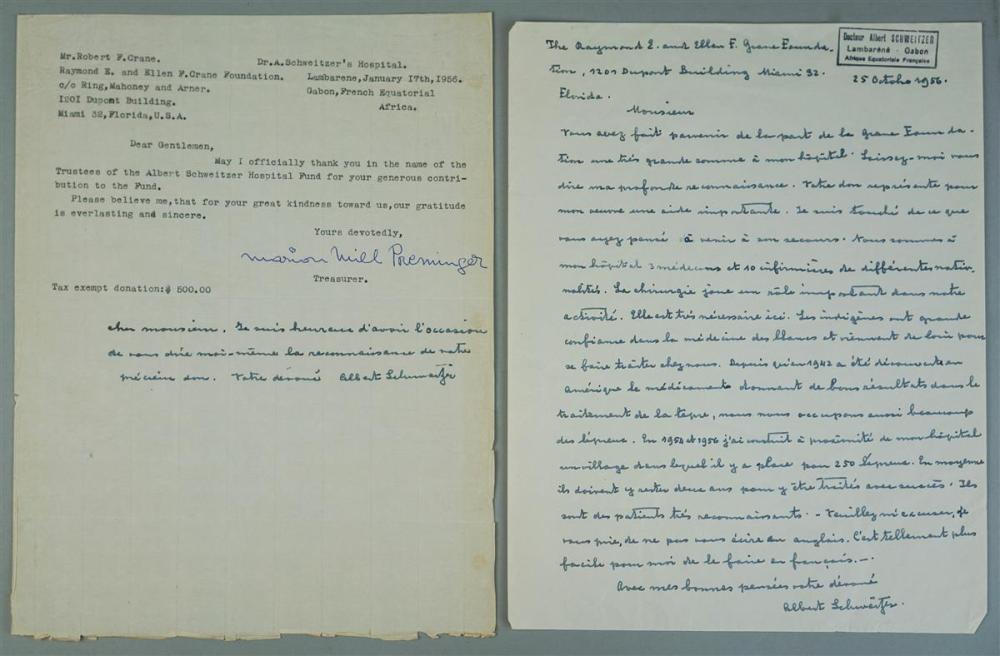 Mr.Robert F.Crane.
Raymond E. and Ellen F.Crane Foundation.
c/o Ring,Mahoney and Arner.
1201 Dupont Building.
Miami 32,Florida,U.S.A.
Dr.A.Schweitzer's Hospital.
Lambarene,January 17th,1956.
Gabon,French Equatorial
Africa.
Dear Gentlemen,
May I officially thank you in the name of the
Trustees of the Albert Schweitzer Hospital Fund for your generous contri-
bution to the Fund.
Please believe me,that for your great kindness toward us,our gratitude
is everlasting and sincere.
Yours devotedly,
Marion Mill Preminger
Treasurer.
Tax exempt donation:$ 500.00
cher monsieur. Je suis heureux d'avoir l'occasion
de vous dire moi-même la reconnaissance de votre
précieux don. Votre dévoué Albert Schweitzer
Docteur Albert SCHWEITZER
Lambaréné - Gabon
Afrique Equatoriale Française
The Raymond E. and Ellen F. Crane Founda-
tion, 1201 Dupont Building Miami 32.
Florida.
25 Octobre 1956.
Monsieur
Vous avez fait parvenir de la part de la Crane Founda-
tion une très grande somme à mon hôpital. Laissez-moi vous
dire ma profonde reconnaissance. Votre don représente pour
mon oeuvre une aide importante. Je suis touché de ce que
vous ayez pensé à venir à son secours. Nous sommes à
mon hôpital 3 médecins et 10 infirmières de différentes natio-
nalités. La chirurgie joue un rôle important dans notre
activité. Elle est très nécessaire ici. Les indigènes ont grande
confiance dans la médecine des blancs et viennent de loin pour
se faire traiter chez nous. Depuis qu'en 1943 a été découvert en
Amérique le médicament donnant de bons résultats dans le
traitement de la lèpre, nous nous occupons aussi beaucoup
des lépreux. En 1954 et 1956 j'ai construit à proximité de mon hôpital
un village dans lequel il y a place pour 250 lépreux. En moyenne
ils doivent y rester deux ans pour y être traités avec succès. Ils
sont des patients très reconnaissants. - Veuillez m'excuser, je
vous prie, de ne pas vous écrire en anglais. C'est tellement plus
facile pour moi de le faire en français.-
Avec mes bonnes pensées votre dévoué
Albert Schweitzer.